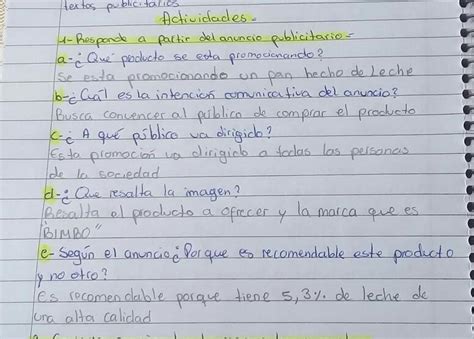 textos publicitarios
Actividades.
1- Responde a partir del anuncio publicitario=
a-¿Qué producto se esta promocionando?
Se esta promocionando un pan hecho de Leche
b-¿Cuál es la intención comunicativa del anuncio?
Busca convencer al público de comprar el producto
c-¿A qué público va dirigido?
Esta promoción va dirigido a todas las personas
de la sociedad
d-¿Que resalta la imagen?
Resalta el producto a ofrecer y la marca que es
"BIMBO"
e- Según el anuncio ¿Porque es recomendable este producto
y no otro?
Es recomendable porque tiene 5,3% de leche de
una alta calidad